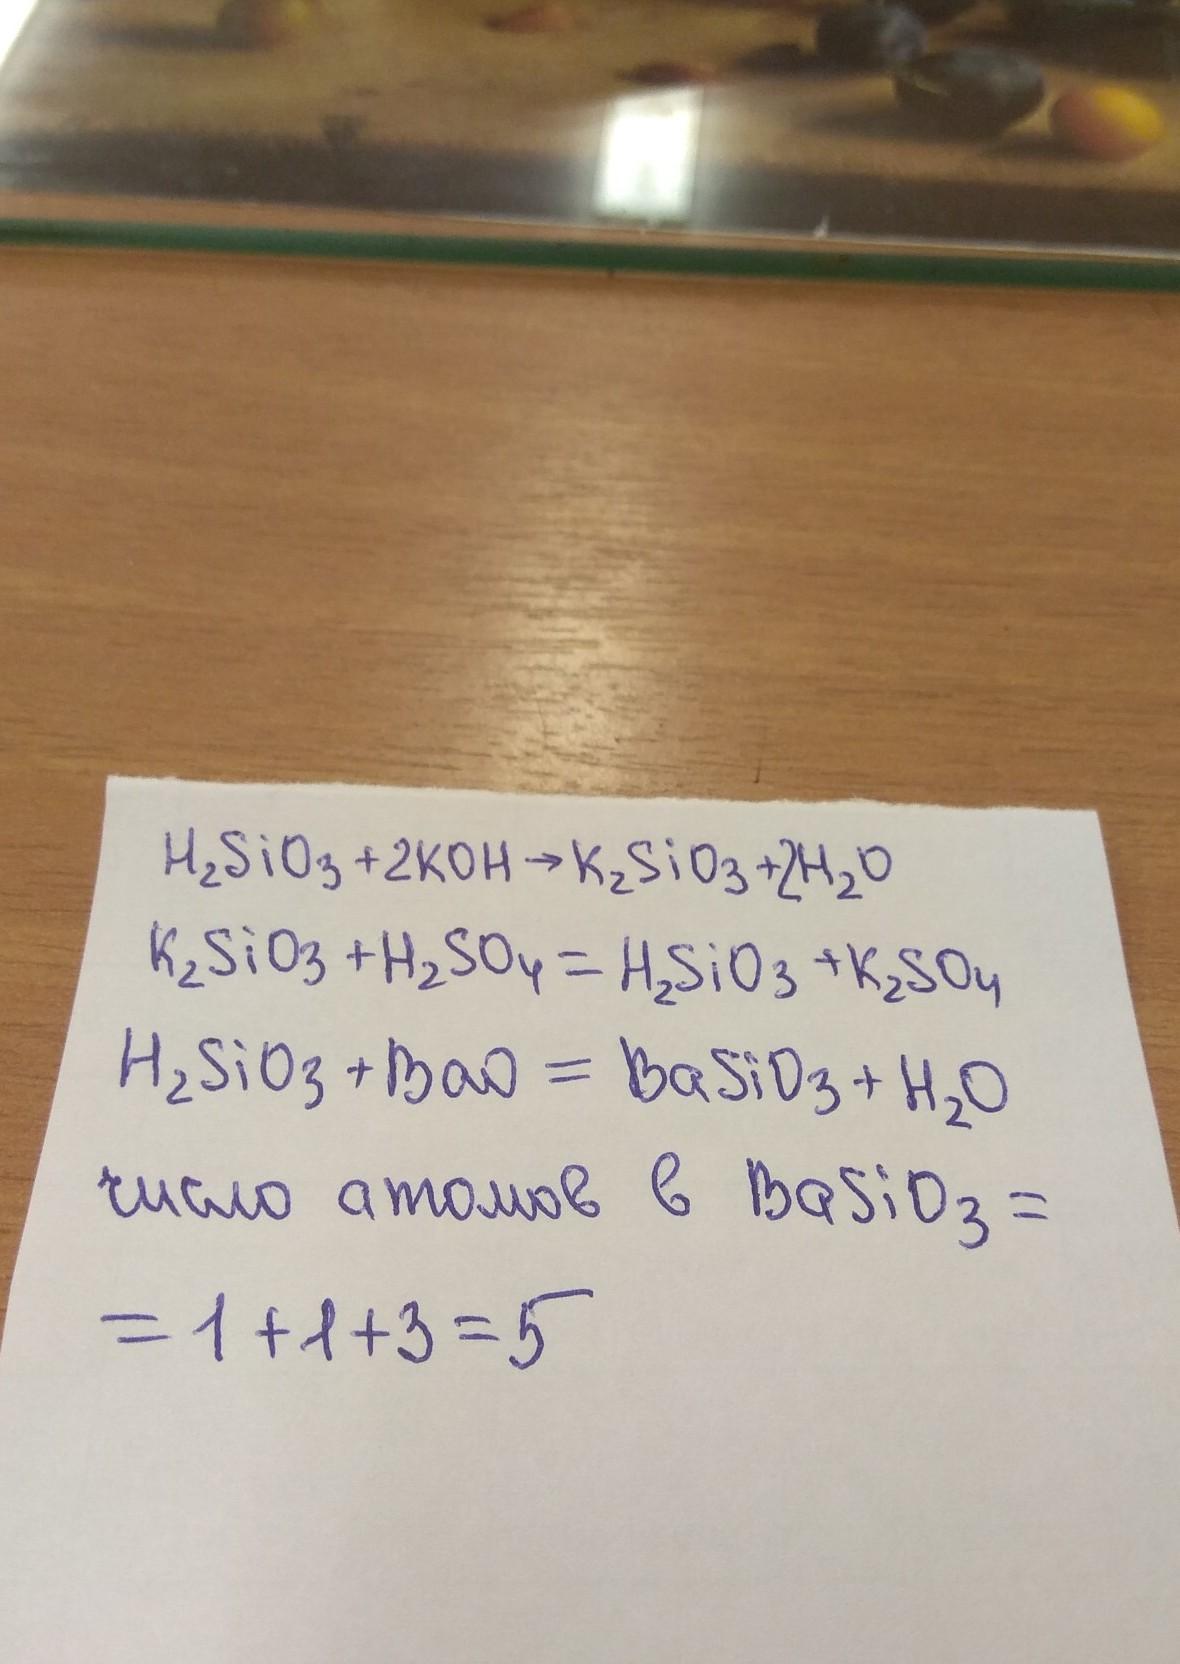 H₂SiO₃+2KOH→K₂SiO₃+2H₂O
K₂SiO₃+H₂SO₄=H₂SiO₃+K₂SO₄
H₂SiO₃+BaO=BaSiO₃+H₂O
число атомов в BaSiO₃=
=1+1+3=5